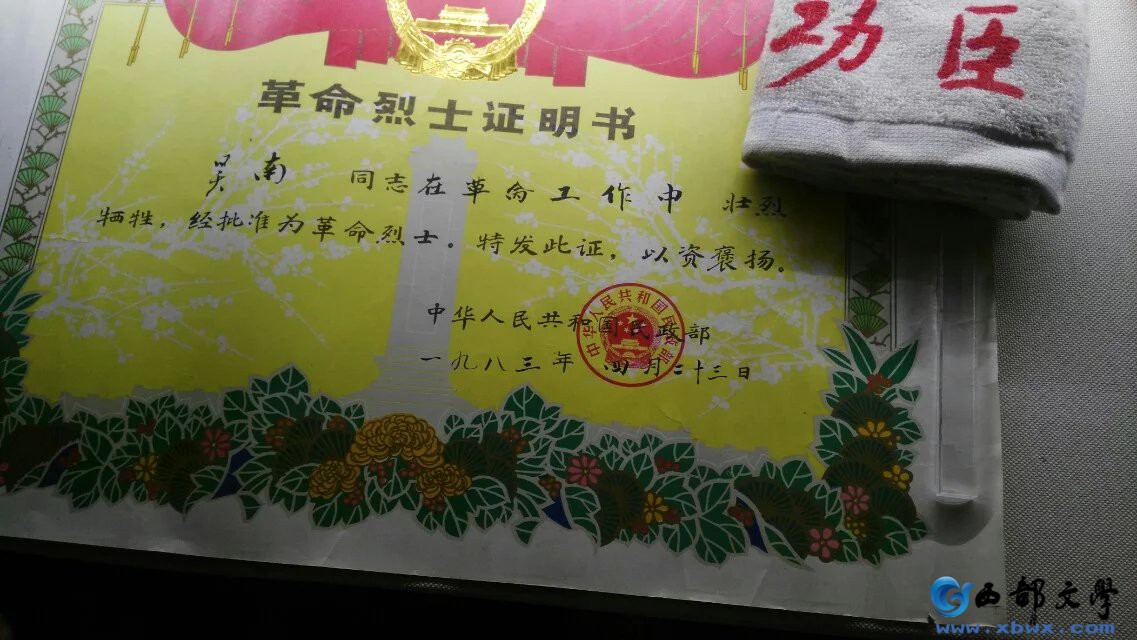 功臣
革命烈士证明书
吴南 同志在革命工作中 壮烈
牺牲，经批准为革命烈士。特发此证，以资褒扬。
中华人民共和国民政部
一九八三年 四月二十三日
中华人民共和国民政部
西部文學
www.xbwx.com